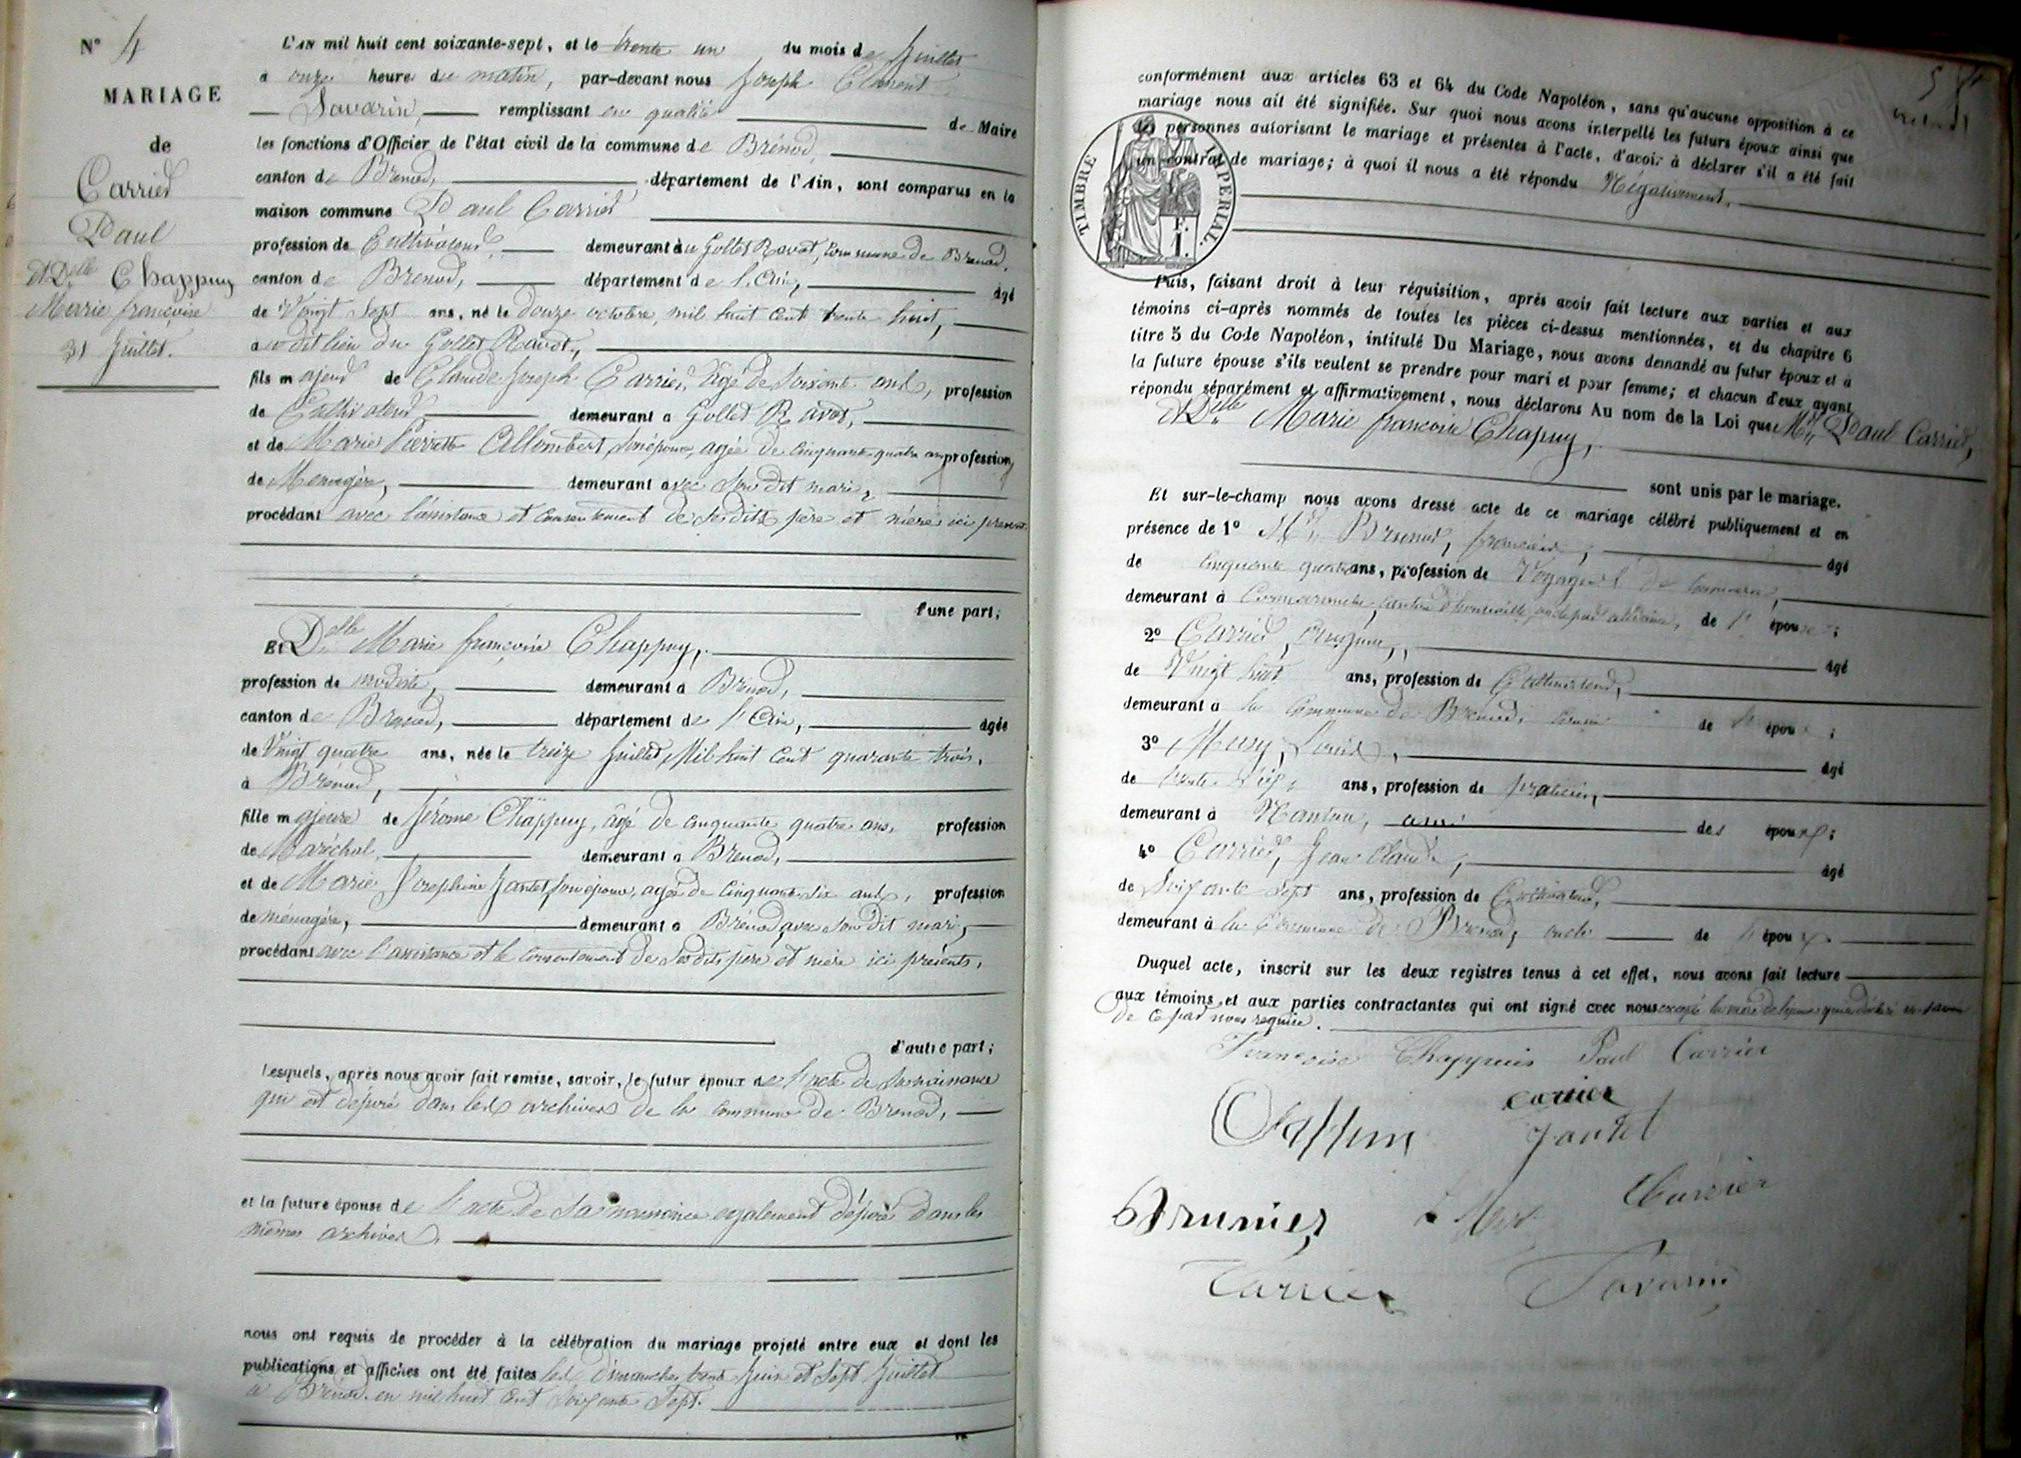 N° 4
MARIAGE
de
Carrier
Paul
et Delle Chappuy
Marie françoise
31 Juillet.
L'AN mil huit cent soixante-sept, et le trente un du mois de Juillet
à onze heure du matin, par-devant nous Joseph Clément
Savarin, remplissant en qualité de Maire
les fonctions d'Officier de l'état civil de la commune de Brénod,
canton de Brénod, département de l'Ain, sont comparus en la
maison commune Paul Carrier
profession de Cultivateur, demeurant au Gollet Ravat, commune de Brenod,
canton de Brenod, département de l'Ain, âgé
de Vingt sept ans, né le douze octobre, mil huit cent trente huit,
au dit lieu du Gollet Ravat,
fils majeur de Claude Joseph Carrier, âgé de soixante ans, profession
de Cultivateur demeurant a Gollet Ravat,
et de Marie Pierrette Allombert, son épouse, agée de cinquante quatre ans profession
de Menagère, demeurant avec son dit mari,
procédant avec l'assistance et consentement de ses dits père et mère ici présents
d'une part;
Et Delle Marie françoise Chappuy,
profession de modiste, demeurant à Brénod,
canton de Brénod, département de l'Ain, âgée
de Vingt quatre ans, née le treize Juillet Mil huit cent quarante trois,
à Brénod,
fille majeure de Jérome Chappuy, âgé de cinquante quatre ans, profession
de Maréchal, demeurant a Brenod,
et de Marie Josephine Jantet, son épouse, agée de cinquante six ans, profession
de ménagère, demeurant a Brénod avec son dit mari,
procédant avec l'assistance et le consentement de ses dits père et mère ici présents,
d'autre part;
Lesquels, après nous avoir fait remise, savoir, le futur époux de l'acte de sa naissance
qui est déposé dans les archives de la commune de Brenod,
et la future épouse de l'acte de sa naissance egalement déposé dans les
mêmes archives.
nous ont requis de procéder à la célébration du mariage projeté entre eux et dont les
publications et affiches ont été faites les Dimanches trente Juin et sept Juillet
à Brénod en mil huit cent soixante sept.
5
conformément aux articles 63 et 64 du Code Napoléon, sans qu'aucune opposition à ce
mariage nous ait été signifiée. Sur quoi nous avons interpellé les futurs époux ainsi que
les personnes autorisant le mariage et présentes à l'acte, d'avoir à déclarer s'il a été fait
un contrat de mariage; à quoi il nous a été répondu Négativement,
TIMBRE IMPERIAL.
1 F.
Puis, faisant droit à leur réquisition, après avoir fait lecture aux parties et aux
témoins ci-après nommés de toutes les pièces ci-dessus mentionnées, et du chapitre 6
titre 5 du Code Napoléon, intitulé Du Mariage, nous avons demandé au futur époux et à
la future épouse s'ils veulent se prendre pour mari et pour femme; et chacun d'eux ayant
répondu séparément et affirmativement, nous déclarons Au nom de la Loi que Mr Paul Carrier,
et Delle Marie françoise Chapuy,
sont unis par le mariage.
Et sur-le-champ nous avons dressé acte de ce mariage célébré publiquement et en
présence de 1° Mr françois, âgé
de cinquante quatre ans, profession de Voyageur de commerce,
demeurant à Cormaranche, canton d'hauteville, oncle par alliance, de l'épouse;
2° Carrier, âgé
de Vingt huit ans, profession de Cultivateur,
demeurant à la Commune de Brenod, cousin de l'époux;
3° Louis, âgé
de trente ans, profession de praticien,
demeurant à Nantua, ami des époux;
4° Carrier, Jean Claude, âgé
de Soixante sept ans, profession de Cultivateur,
demeurant à la Commune de Brenod, oncle de l'époux
Duquel acte, inscrit sur les deux registres tenus à cet effet, nous avons fait lecture
aux témoins et aux parties contractantes qui ont signé avec nous excepté la mère de l'époux qui a déclaré ne savoir
de ce par nous requise.
Françoise Chappuis Paul Carrier
Chappuy carrier
Jantet
Brunier Carrier
Carrier Savarin